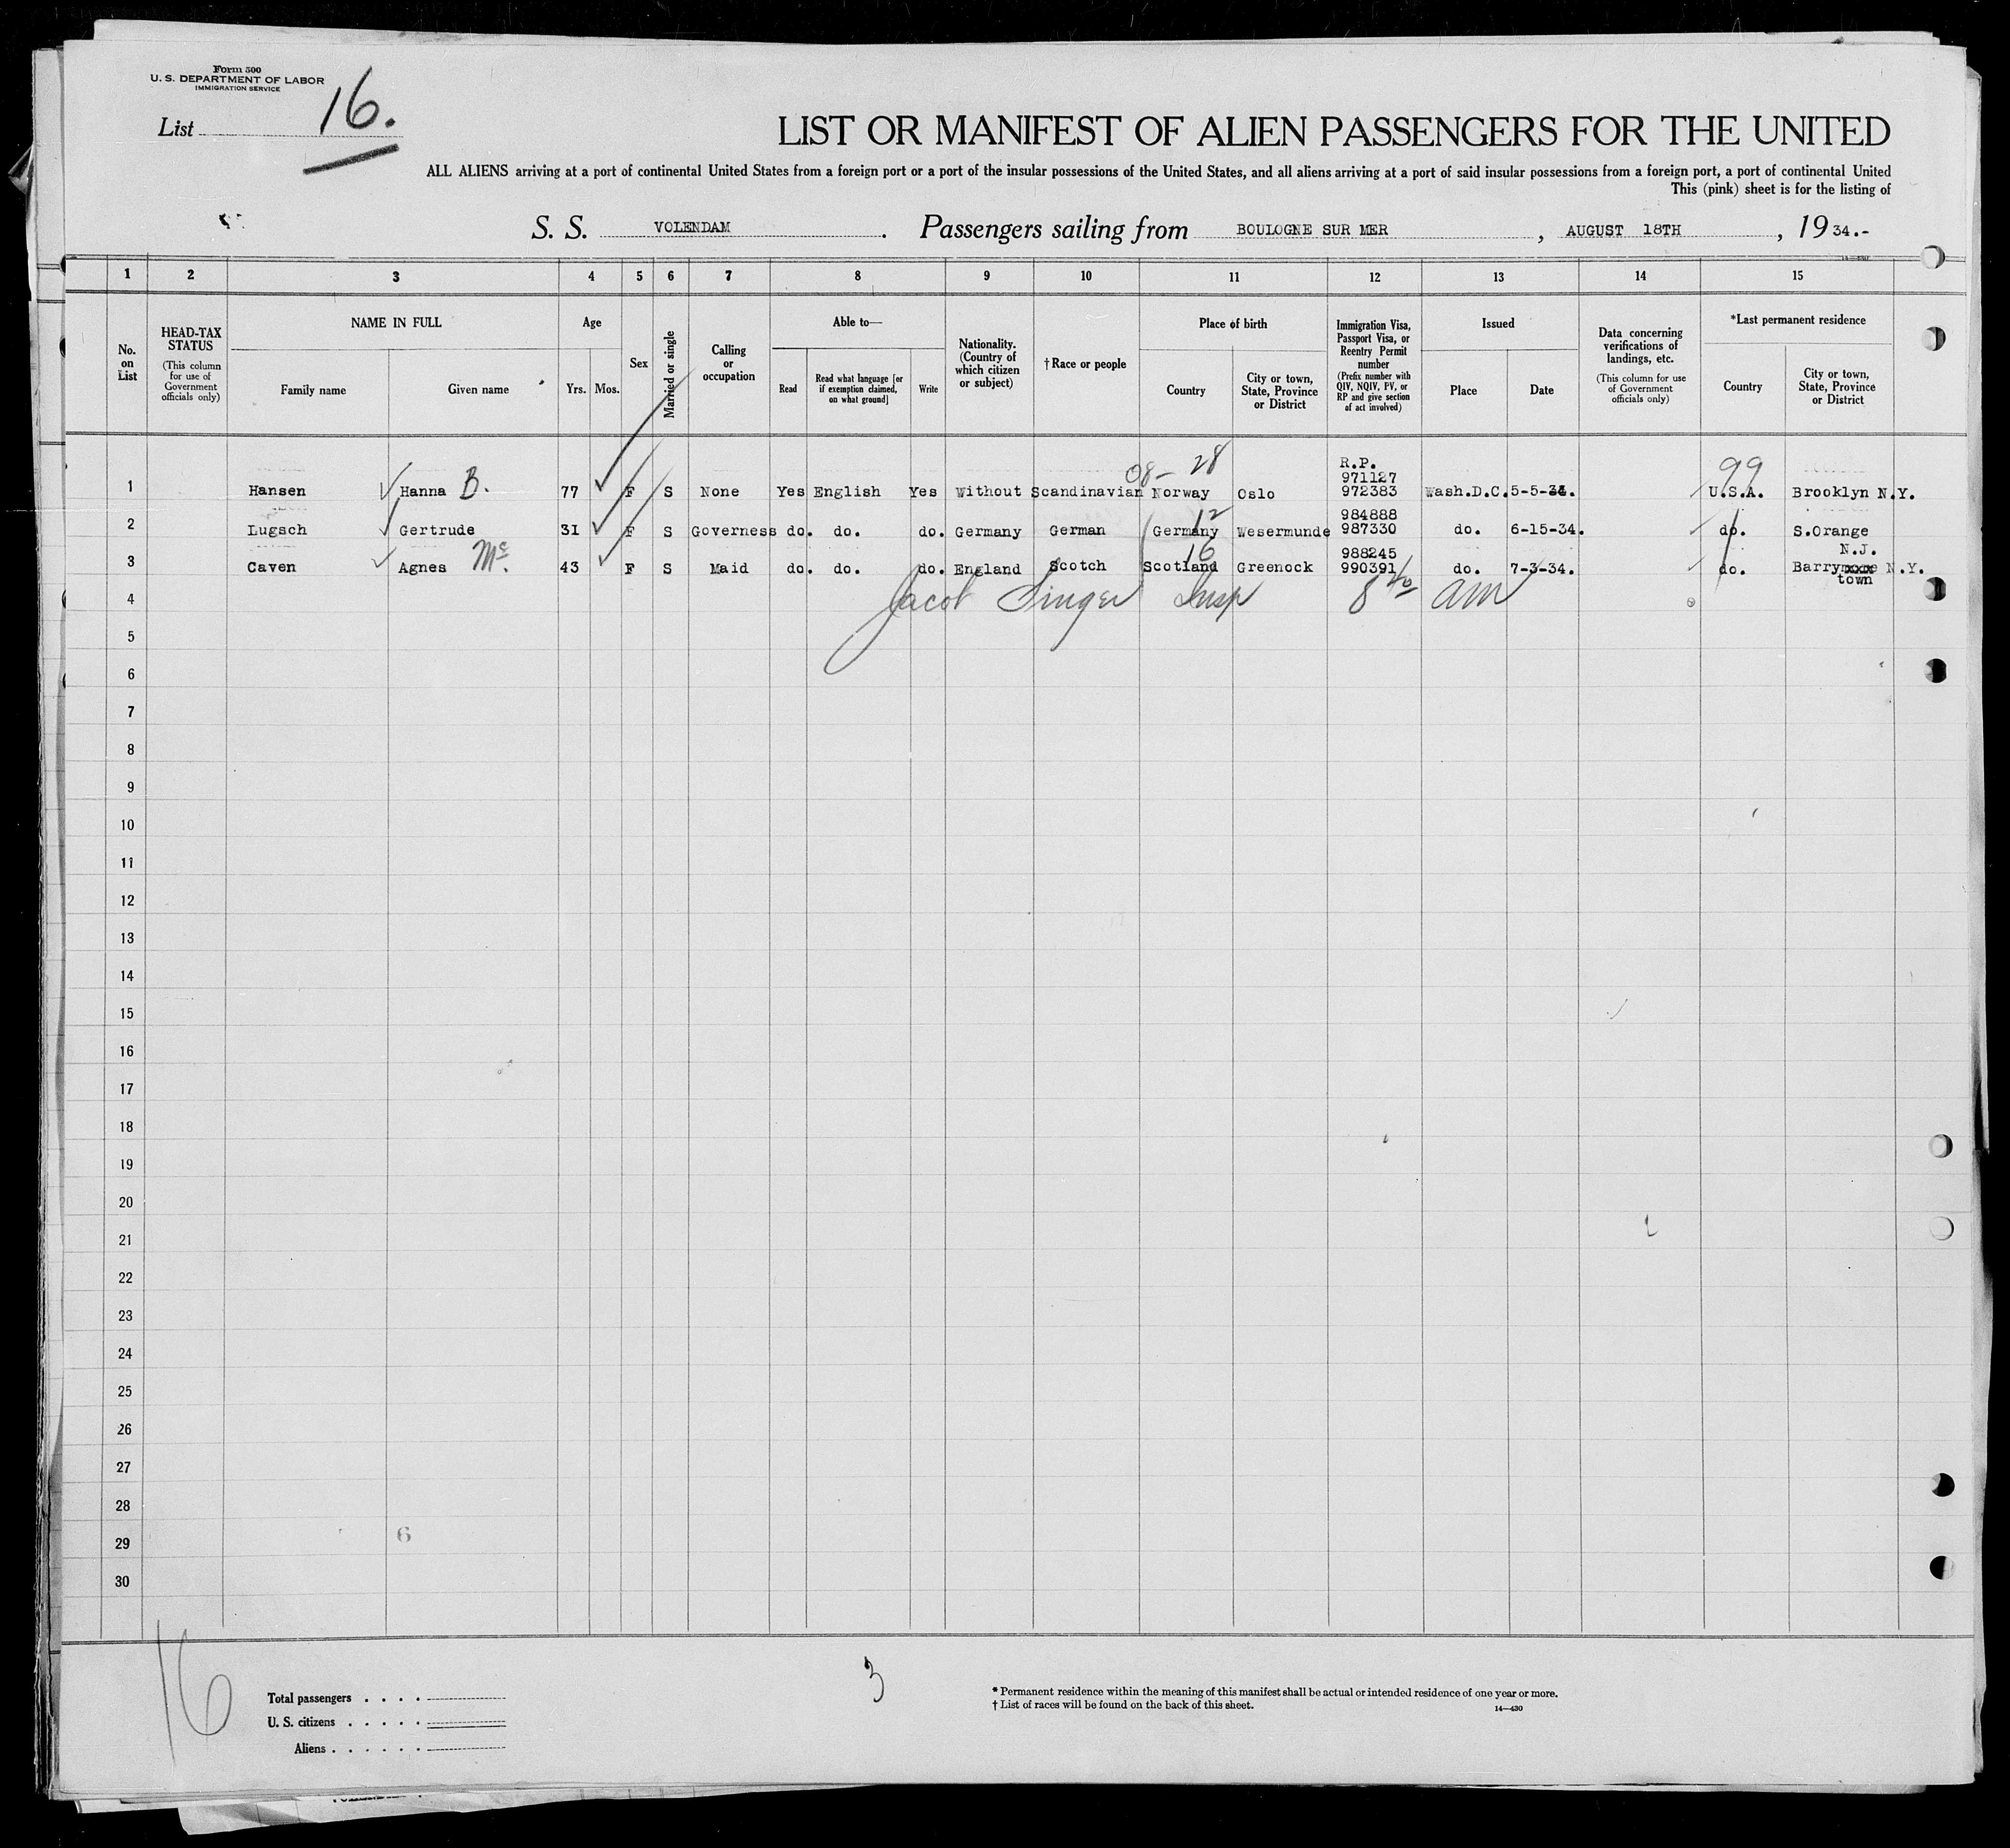 Form 500
U. S. DEPARTMENT OF LABOR
IMMIGRATION SERVICE
List 16.
LIST OR MANIFEST OF ALIEN PASSENGERS FOR THE UNITED
ALL ALIENS arriving at a port of continental United States from a foreign port or a port of the insular possessions of the United States, and all aliens arriving at a port of said insular possessions from a foreign port, a port of continental United
This (pink) sheet is for the listing of
S. S. VOLENDAM . Passengers sailing from BOULOGNE SUR MER , AUGUST 18TH , 1934.-
1 2 3 4 5 6 7 8 9 10 11 12 13 14 15
No. on List
HEAD-TAX STATUS
(This column for use of Government officials only)
NAME IN FULL
Family name
Given name
Age
Yrs.
Mos.
Sex
Married or single
Calling or occupation
Able to—
Read
Read what language [or if exemption claimed, on what ground]
Write
Nationality. (Country of which citizen or subject)
† Race or people
Place of birth
Country
City or town, State, Province or District
Immigration Visa, Passport Visa, or Reentry Permit number
(Prefix number with QIV, NQIV, PV, or RP and give section of act involved)
Issued
Place
Date
Data concerning verifications of landings, etc.
(This column for use of Government officials only)
*Last permanent residence
Country
City or town, State, Province or District
08- 28 R.P. 99
971127
1 Hansen Hanna B. 77 F S None Yes English Yes Without Scandinavian Norway Oslo 972383 Wash.D.C. 5-5-34. U.S.A. Brooklyn N.Y.
12 984888
2 Lugsch Gertrude 31 F S Governess do. do. do. Germany German Germany Wesermunde 987330 do. 6-15-34. do. S.Orange
16 988245 N.J.
3 Caven Agnes Mc. 43 F S Maid do. do. do. England Scotch Scotland Greenock 990391 do. 7-3-34. do. Barryxxxx N.Y.
town
4 Jacob Singer Insp 8 40 am
5
6
7
8
9
10
11
12
13
14
15
16
17
18
19
20
21
22
23
24
25
26
27
28
29 6
30
16
3
Total passengers . . . .
U. S. citizens . . . . .
Aliens . . . . . .
* Permanent residence within the meaning of this manifest shall be actual or intended residence of one year or more.
† List of races will be found on the back of this sheet.
14—430